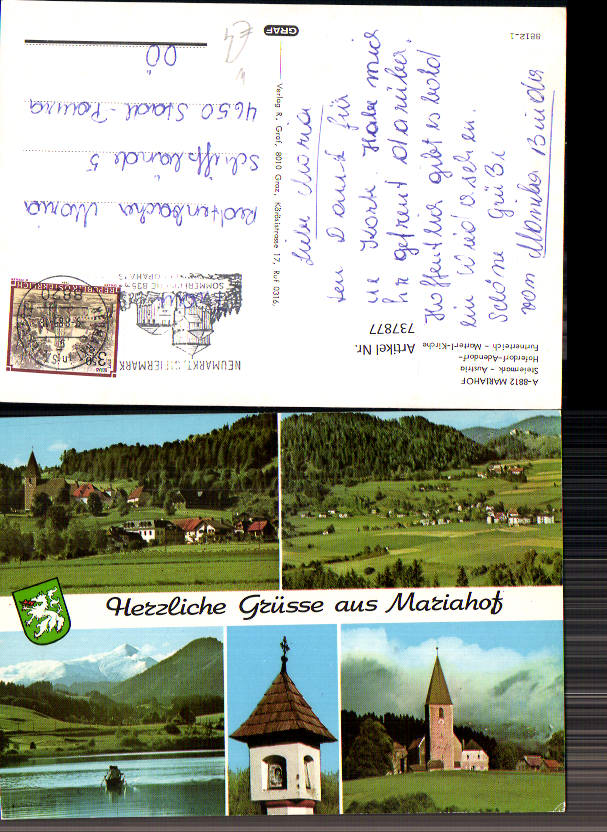 A-8812 MARIAHOF
Steiermark - Austria
Hoferdorf-Adendorf-
Furtnerteich - Marterl-Kirche
Artikel Nr.
737877
Liebe Maria
Dank für
die Karte. Habe mich
gefreut darüber.
Hoffentlich gibt es bald
ein Wiedersehen.
Schöne Grüße
von Monika Binder
8812-1
GRAF
Verlag R. Graf, 8010 Graz, Körösistrasse 17, Ruf 0316.
NEUMARKT, STEIERMARK
SOMMERFRISCHE 835 m
REPUBLIK ÖSTERREICH
8820
3.50
Maria
Schiffslände 5
4650 Stadl-Paura
OÖ
Herzliche Grüsse aus Mariahof